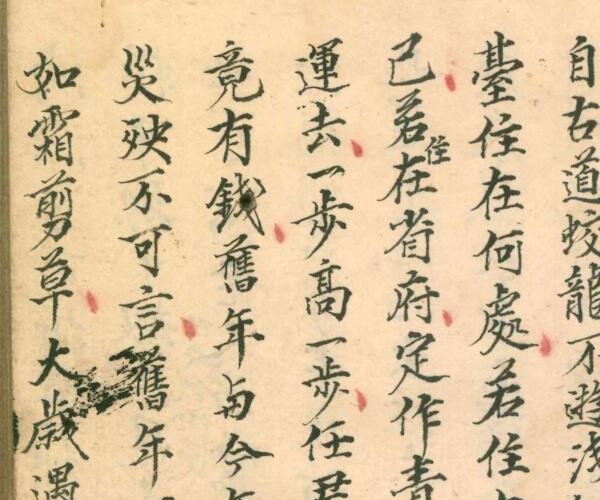 自古道蛟龍不遊淺
臺住在何處若住
己若住在省府定作責
運去一步高一步任君
竟有錢舊年与今年
災殃不可言舊年
如霜剪草大歲遇